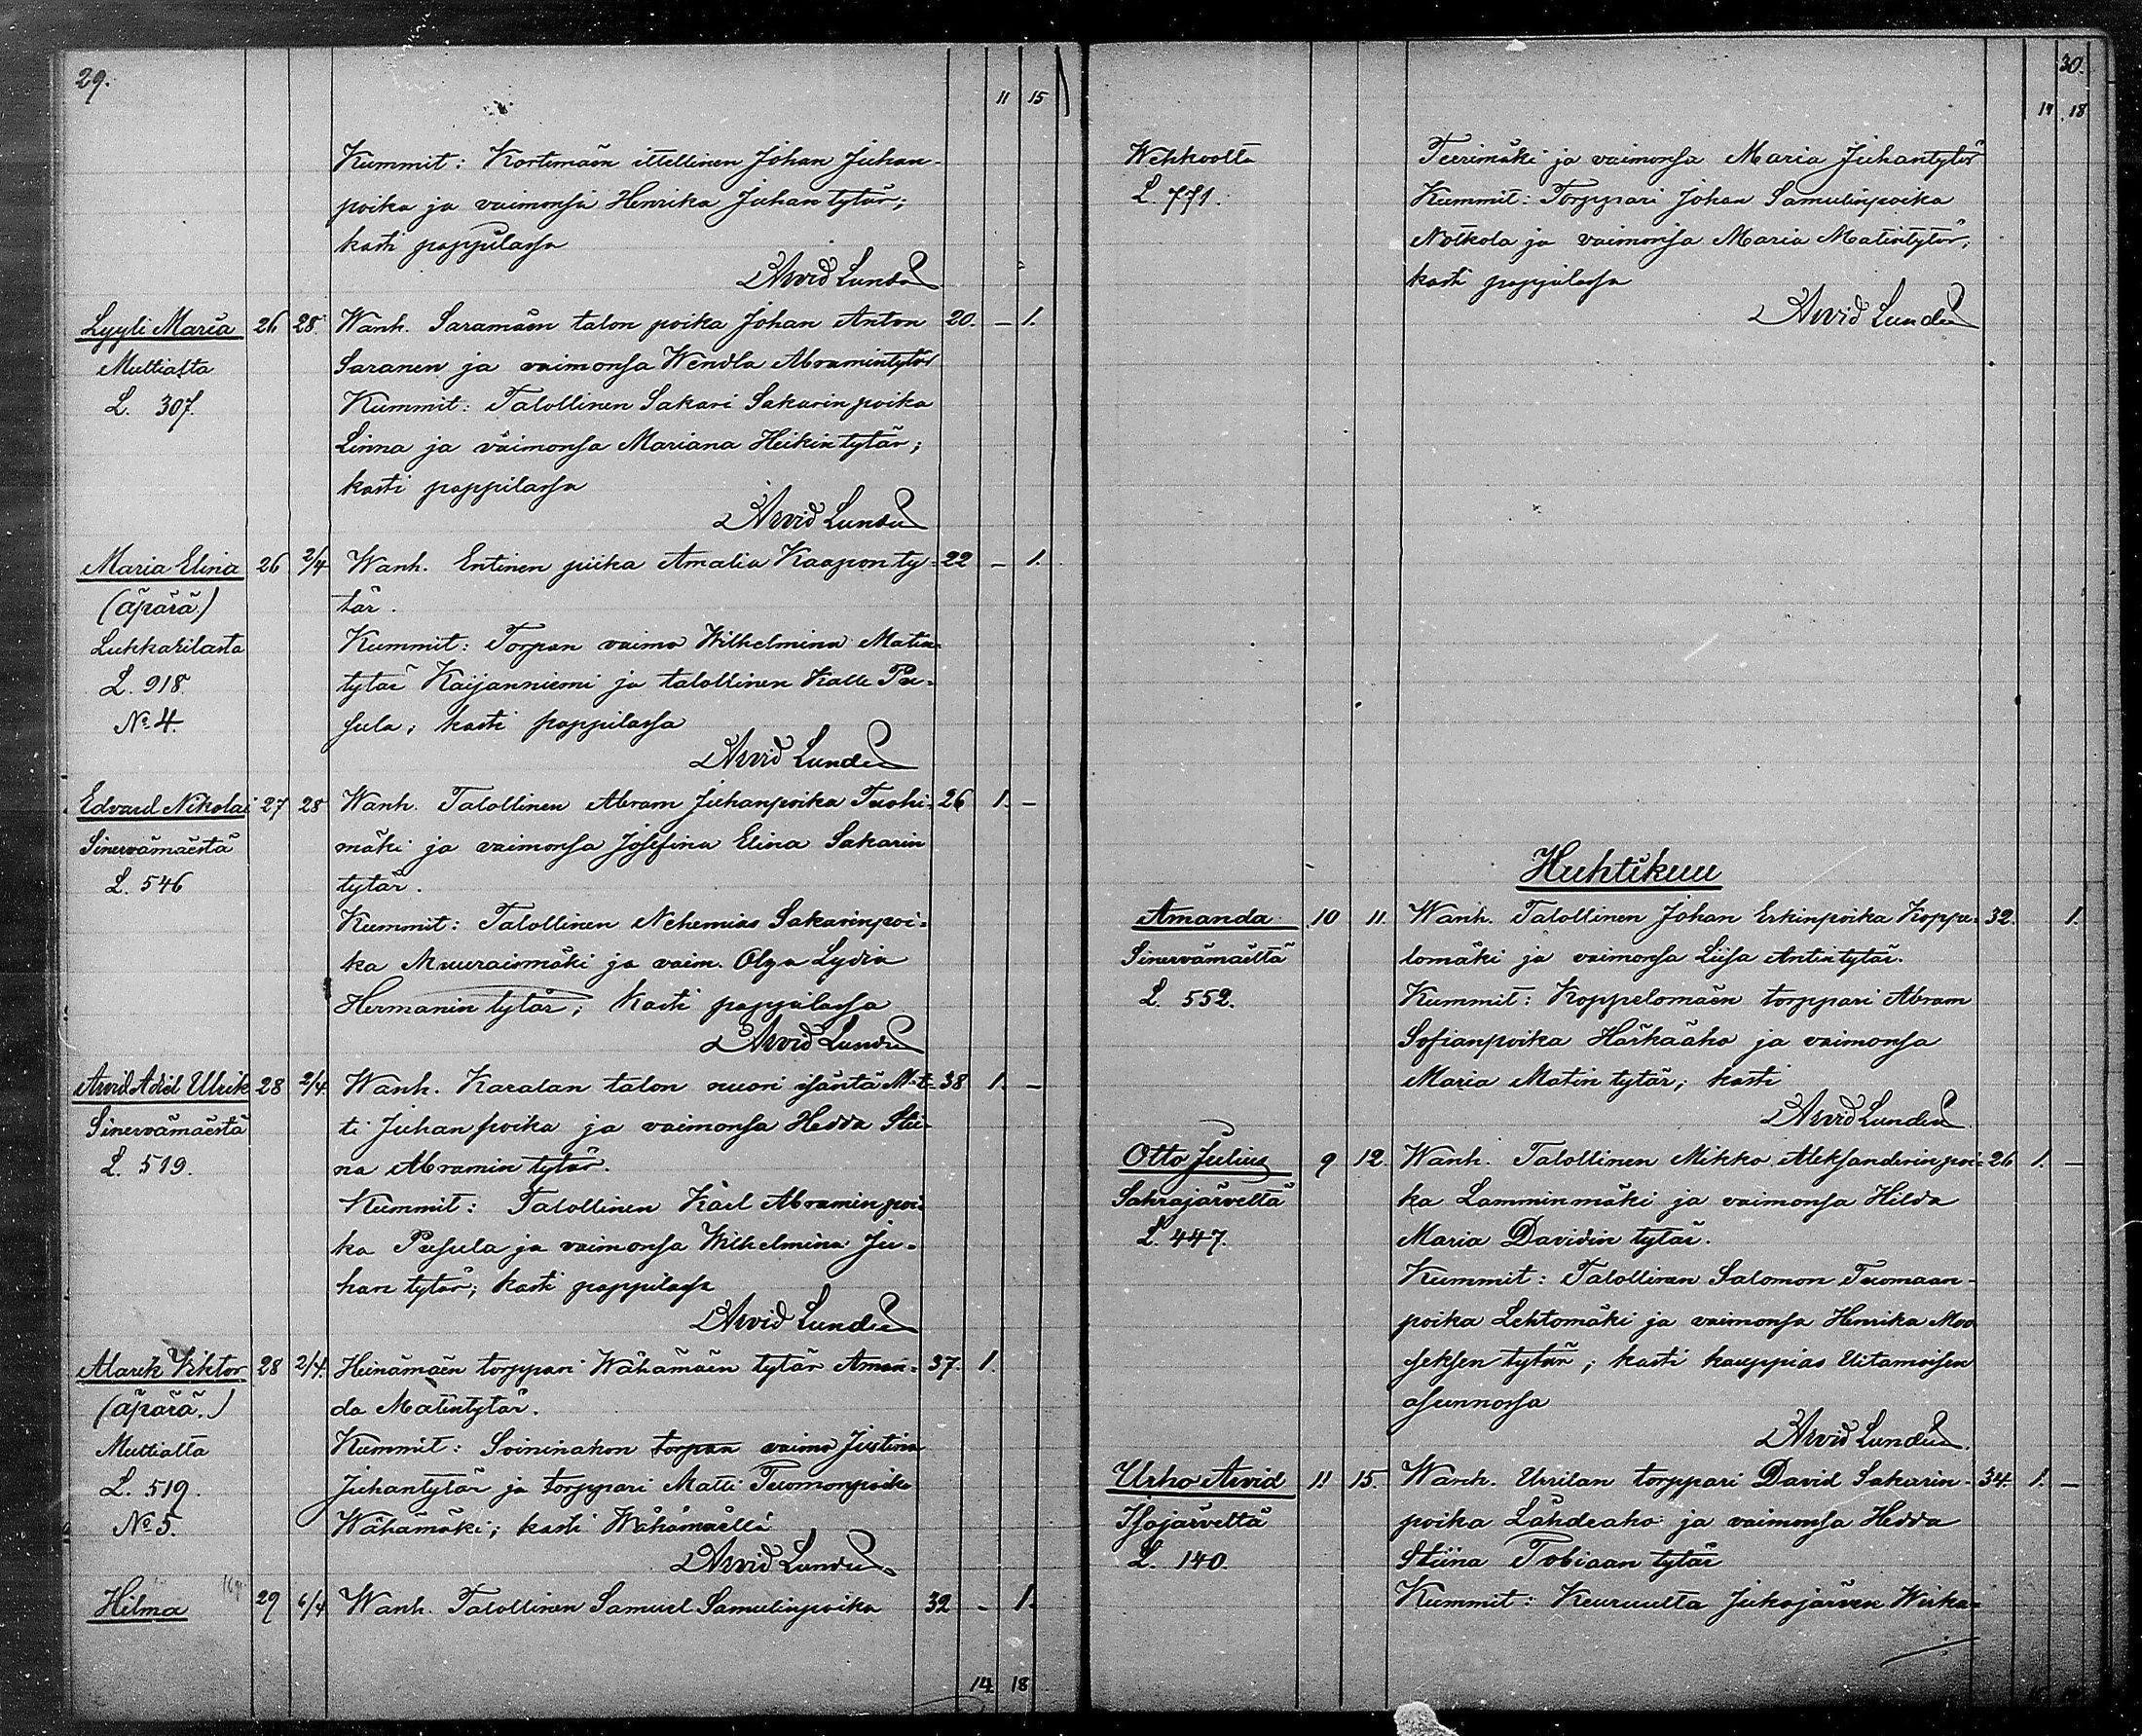 29.
11 15
Kummit: Kortemäen itellinen Johan Juhan-
poika ja vaimonsa Henrika Juhantytär;
kasti pappilassa
Arvid Lunden
Lyyli Maria 26 28. Wanh. Saramäen talon poika Johan Anton 20. – 1.
Multialta Saranen ja vaimonsa Wendla Abramintytär
L. 307. Kummit: Talollinen Sakari Sakarinpoika
Linna ja vaimonsa Mariana Heikintytär;
kasti pappilassa
Arvid Lunden
Maria Elina 26 2/4 Wanh. Entinen piika Amalia Kaaponty- 22 – 1.
(äpärä) tär.
Lukkarilasta Kummit: Torpan vaimo Wilhelmina Matin-
L. 918. tytär Kaijanniemi ja talollinen Kalle Pu-
No 4. sula; kasti pappilassa
Arvid Lunden
Edvard Nikolai 27 28 Wanh. Talollinen Abram Juhanpoika Tuohi- 26 1. –
Sinervämäestä mäki ja vaimonsa Josefina Elina Sakarin
L. 546 tytär.
Kummit: Talollinen Nehemias Sakarinpoi-
ka Muuraismäki ja vaim. Olga Lydia
Hermanintytär; Kasti pappilassa
Arvid Lunden
Arvid Adiel Ulrik 28 2/4. Wanh. Karalan talon nuori isäntä Mat- 38 1. –
Sinervämäestä ti Juhanpoika ja vaimonsa Hedda Stii-
L. 519. na Abramintytär.
Kummit: Talollinen Karl Abraminpoi-
ka Pusula ja vaimonsa Wilhelmina Ju-
hantytär; kasti pappilassa
Arvid Lunden
Alarik Viktor 28 2/4. Heinämäen torppari Wähämäen tytär Aman- 37. 1.
(äpärä.) da Matintytär.
Multialta Kummit: Soininahon torpan vaimo Justina
L. 519. Juhantytär ja torppari Matti Tuomonpoika
No 5. Wähämäki; kasti Wähämäellä
Arvid Lunden
Hilma 29 6/4 Wanh. Talollinen Samuel Samulinpoika 32 – 1.
14 18
30.
14 18
Wehkoolta Teerimäki ja vaimonsa Maria Juhantytär
L. 771. Kummit: Torppari Johan Samulinpoika
Notkola ja vaimonsa Maria Matintytär;
kasti pappilassa
Arvid Lunden
Huhtikuu
Amanda 10 11. Wanh. Talollinen Johan Erkinpoika Koppe- 32. 1.
Sinervämäeltä lomäki ja vaimonsa Liisa Antintytär.
L. 552. Kummit: Koppelomäen torppari Abram
Sofianpoika Härkäaho ja vaimonsa
Maria Matintytär; kasti
Arvid Lunden
Otto Julius 9 12. Wanh. Talollinen Mikko Aleksanderinpoi- 26 1. –
Sahrajärveltä ka Lamminmäki ja vaimonsa Hilda
L. 447. Maria Davidin tytär.
Kummit: Talollinen Salomon Tuomaan-
poika Lehtomäki ja vaimonsa Henrika Moo
seksen tytär; kasti kauppias Uitamoisen
asunnossa
Arvid Lunden.
Urho Arvid 11 15. Wanh. Urrilan torppari David Sakarin- 34. 1. –
Isojärveltä poika Lähdeaho ja vaimonsa Hedda
L. 140. Stiina Tobiaan tytär
Kummit: Keuruulta Jukojärven Wirka-